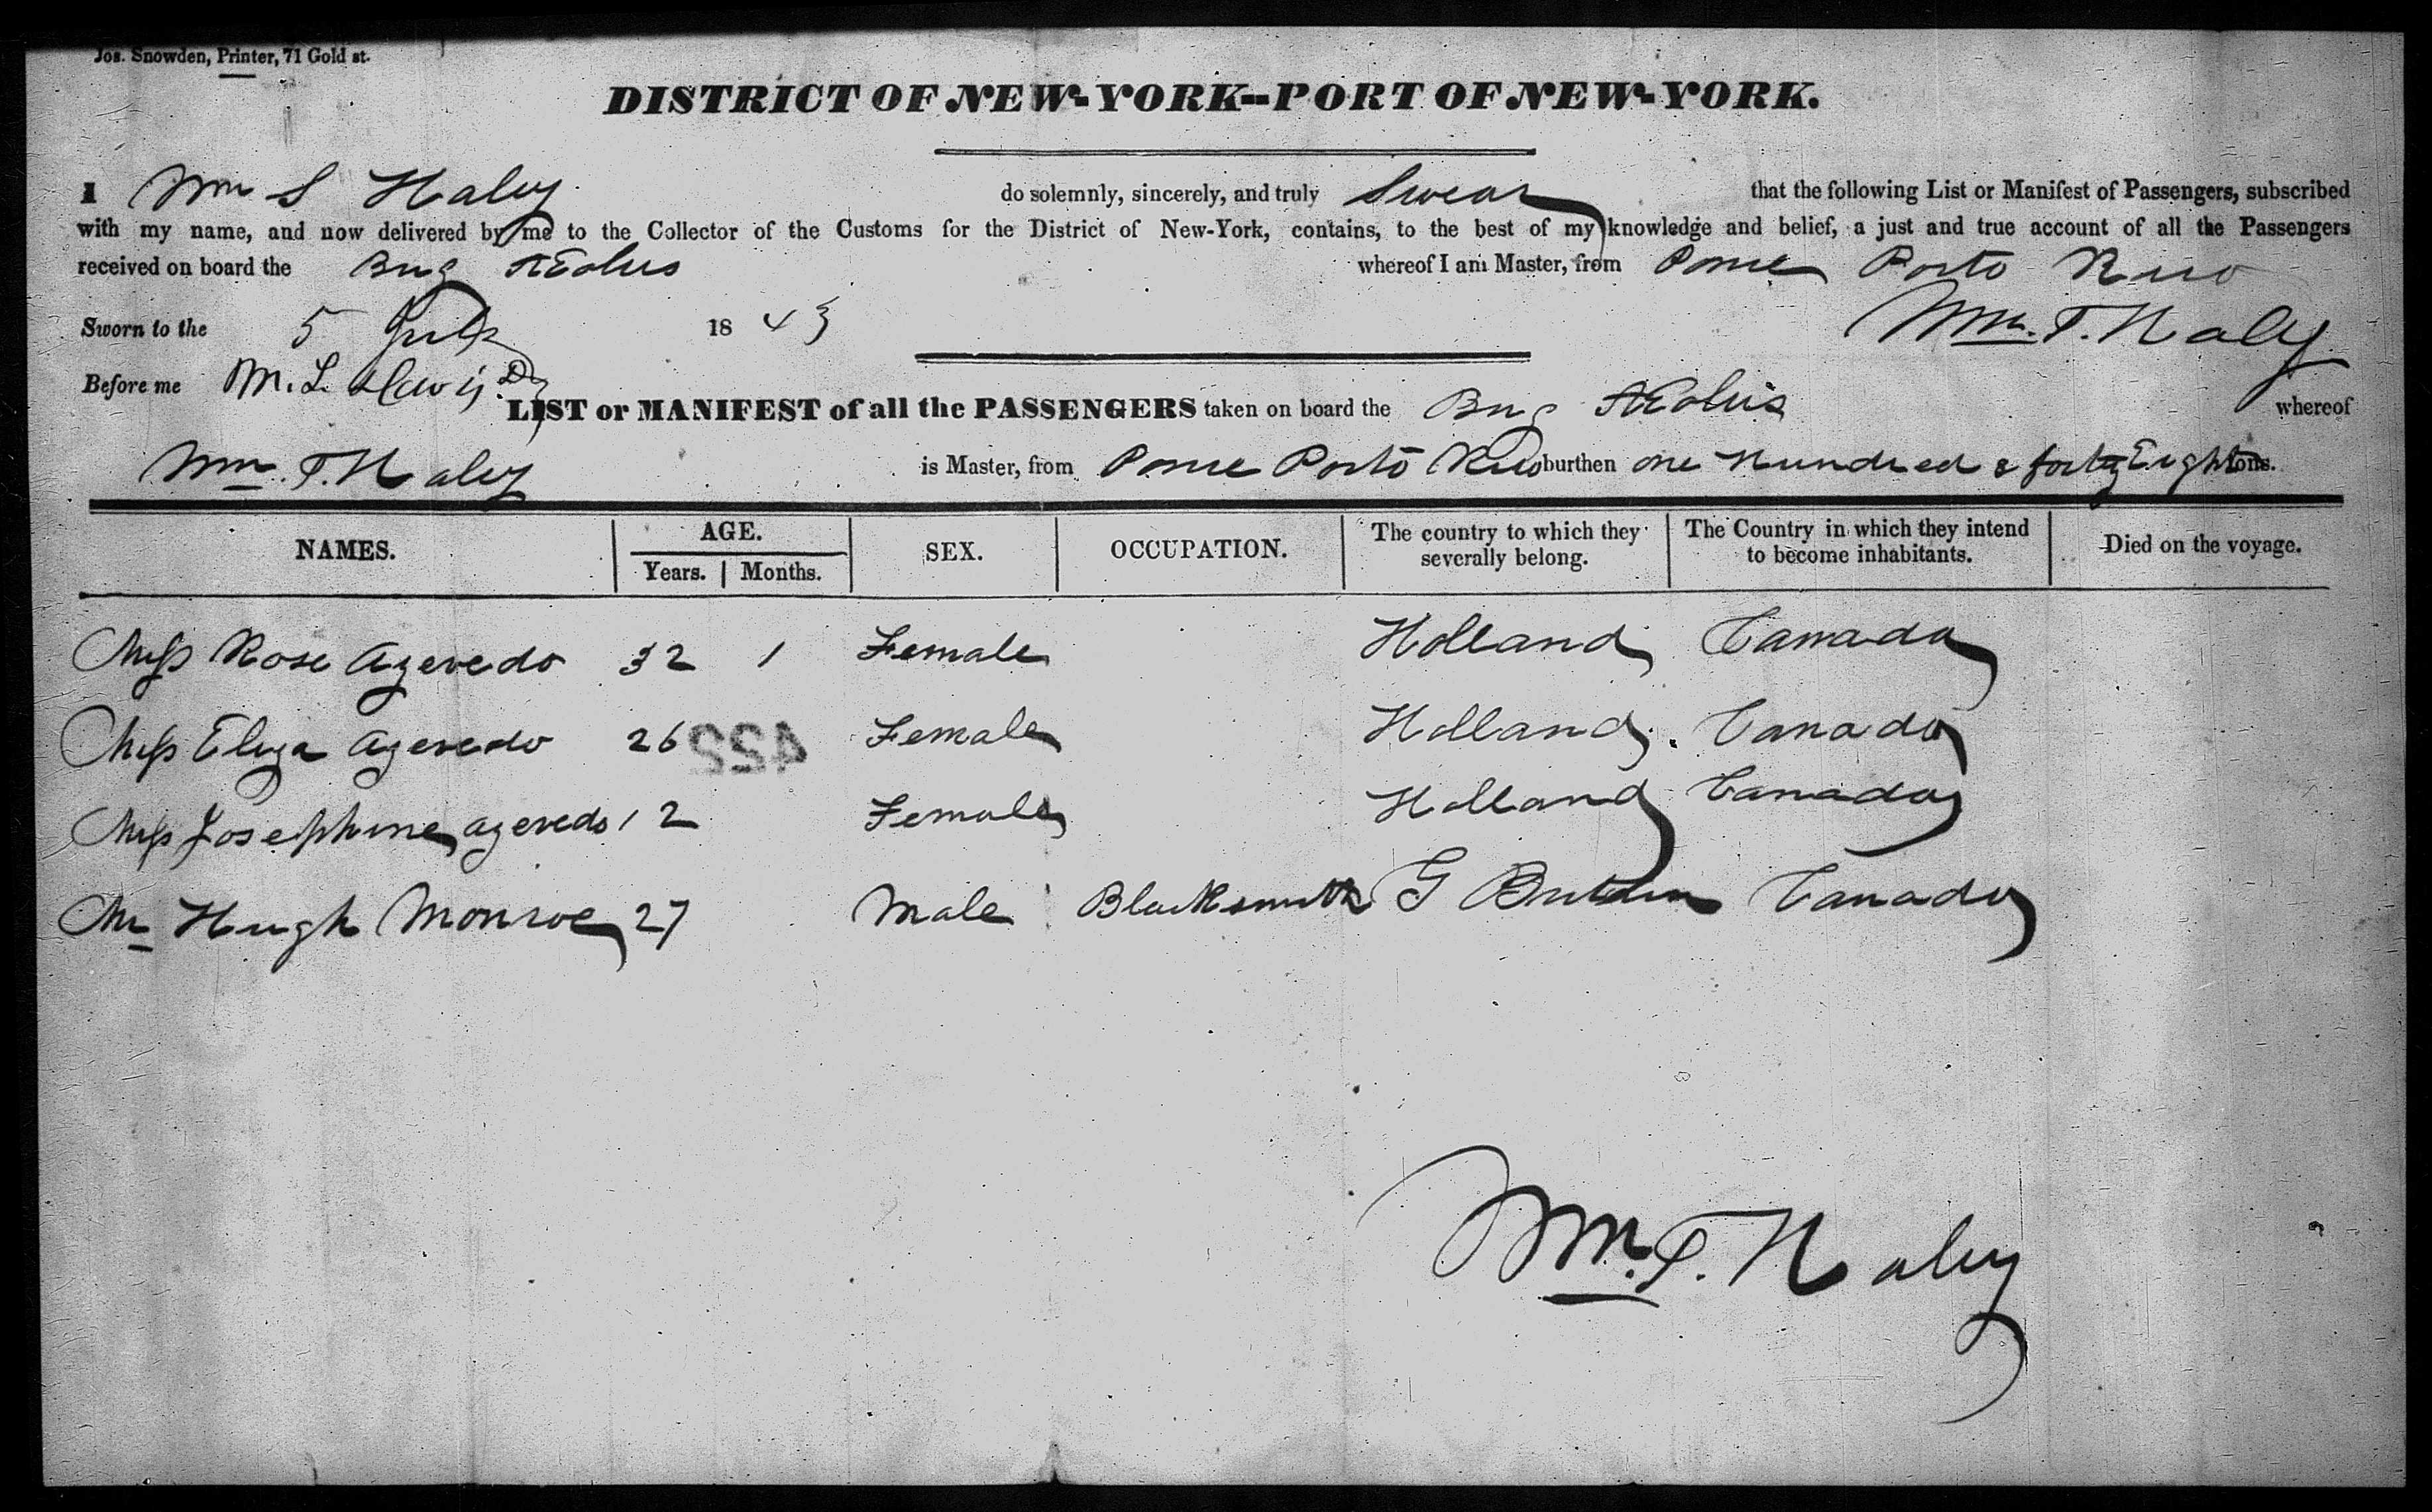 Jos. Snowden, Printer, 71 Gold st.
DISTRICT OF NEW-YORK--PORT OF NEW-YORK.
I Wm S Haley do solemnly, sincerely, and truly Swear that the following List or Manifest of Passengers, subscribed
with my name, and now delivered by me to the Collector of the Customs for the District of New-York, contains, to the best of my knowledge and belief, a just and true account of all the Passengers
received on board the Brig Æolus whereof I am Master, from Ponce Porto Rico
Sworn to the 5 July 1843 Wm. T. Haley
Before me M. L.
LIST or MANIFEST of all the PASSENGERS taken on board the Brig Æolus whereof
Wm. T. Haley is Master, from Ponce Porto Rico burthen one Hundred & forty Eight tons.
NAMES. AGE. Years. Months. SEX. OCCUPATION. The country to which they severally belong. The Country in which they intend to become inhabitants. Died on the voyage.
Miss Rose Azevedo 32 1 Female Holland Cannada
Miss Eliza Azevedo 26 Female Holland. Canada
422
Miss Josephine azevedo 12 Female Holland Canada
Mr Hugh Monroe 27 Male Blacksmith G Britain Canada
Wm. T. Haley